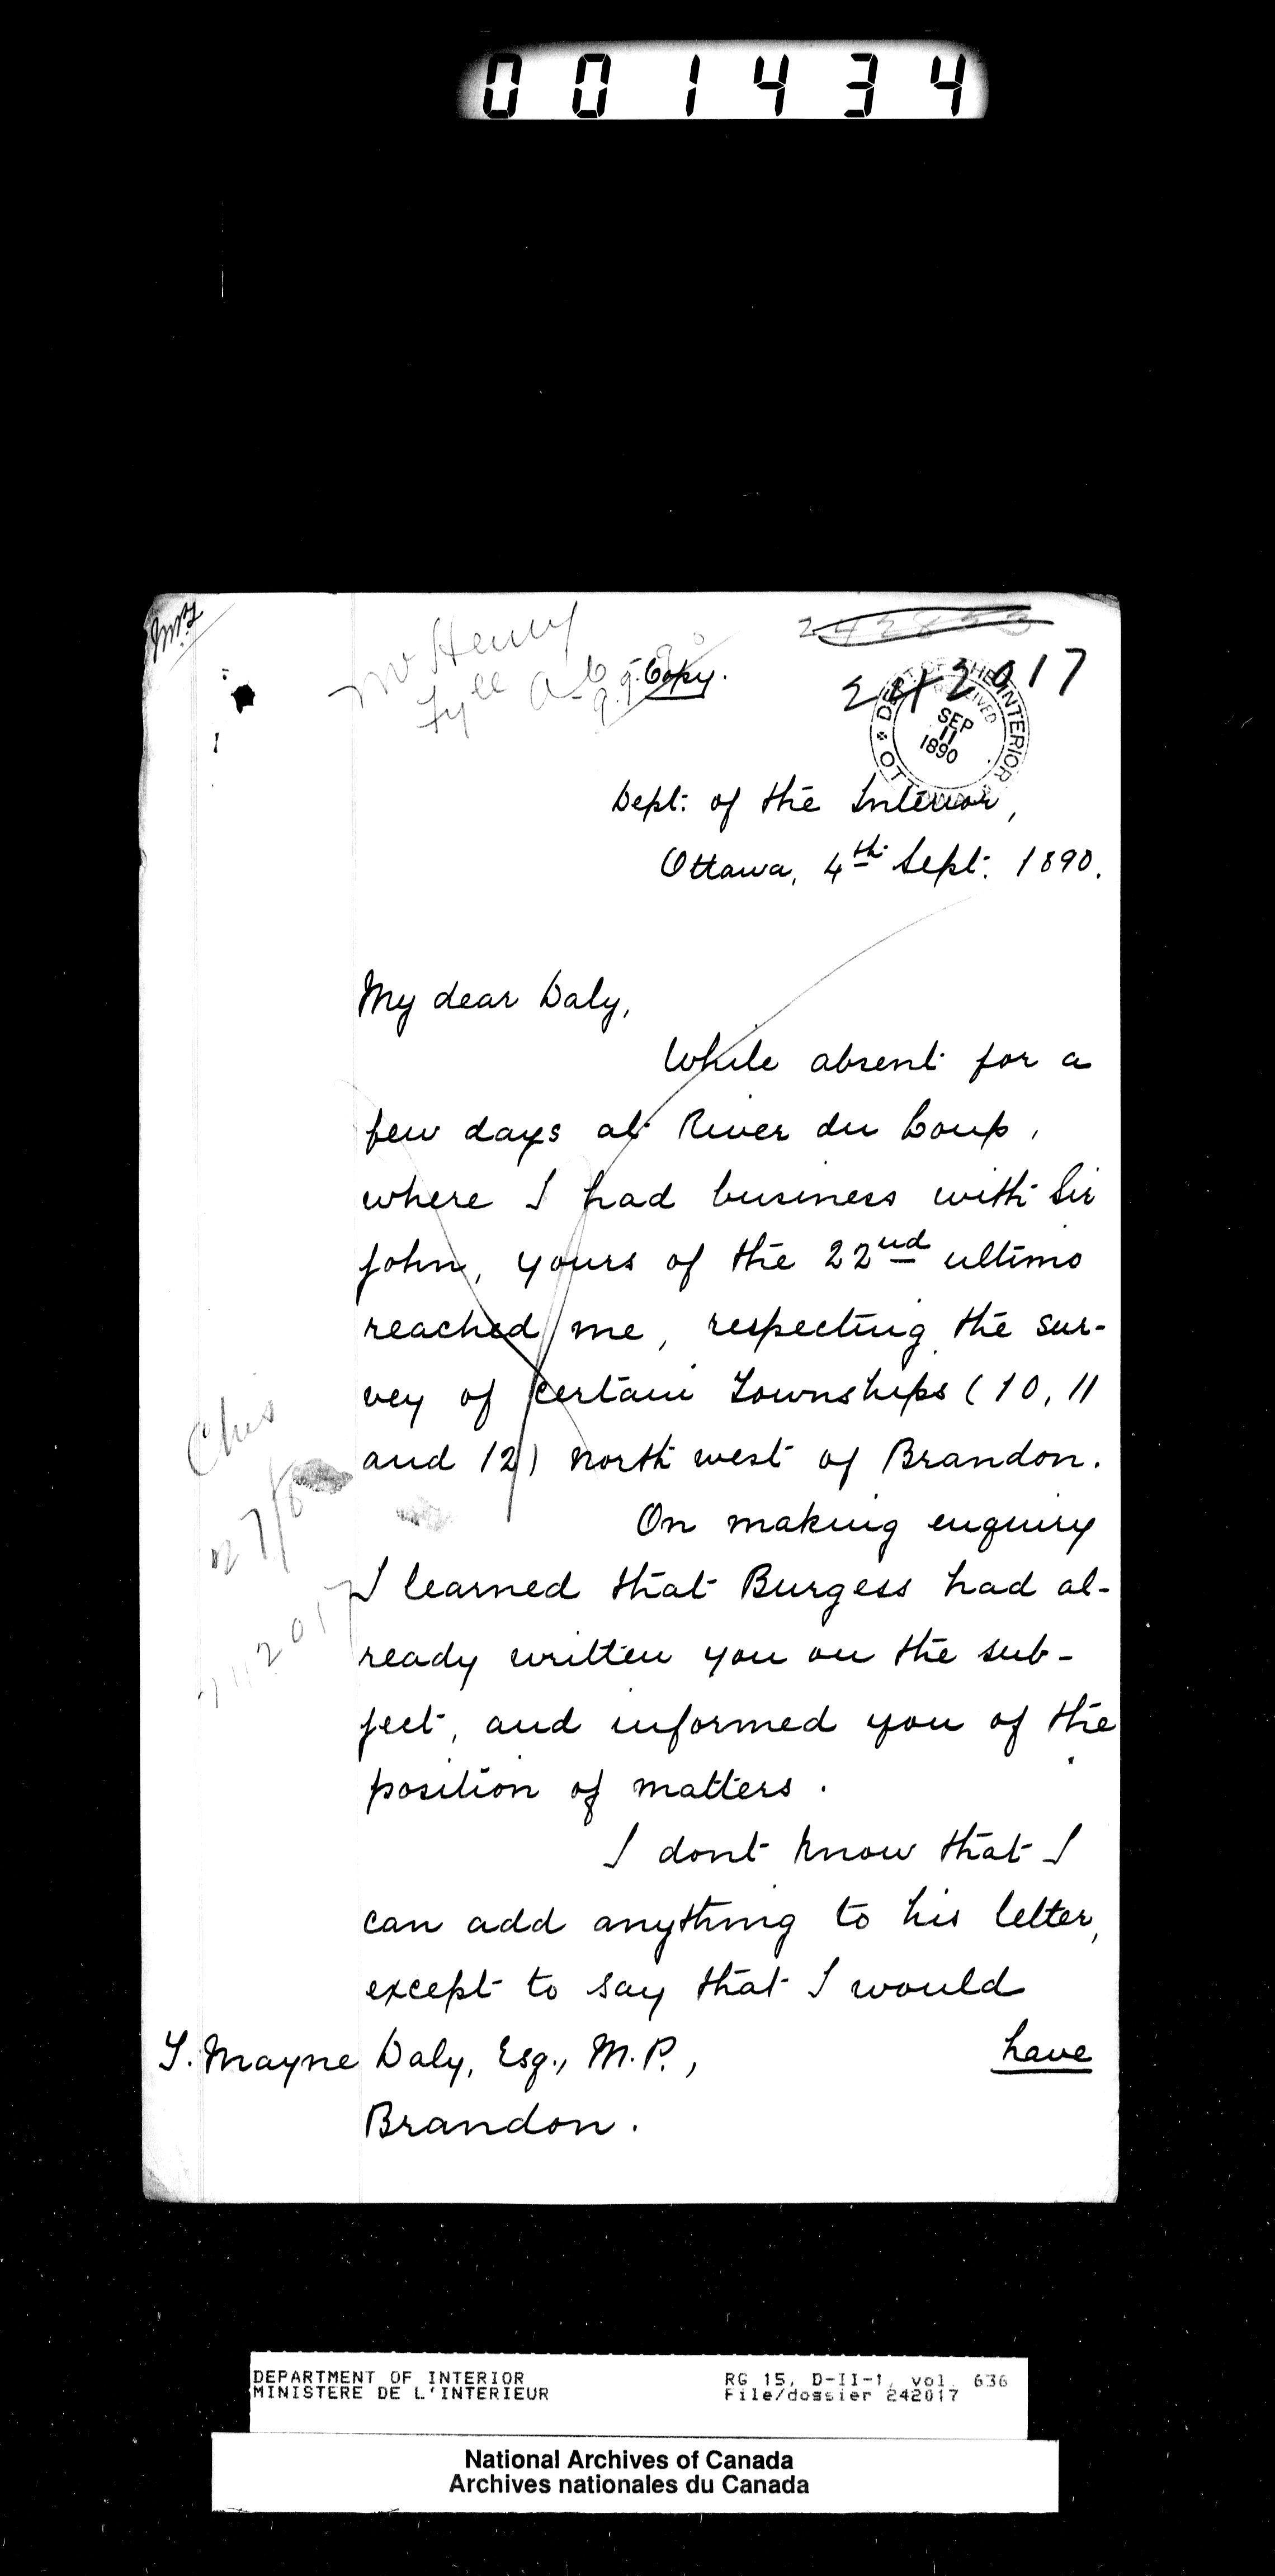 001434
Mr Henry
Copy.
242017
DEPT. OF THE INTERIOR
RECEIVED
SEP
11
1890
OTTAWA
Dept: of the Interior,
Ottawa, 4th Sept: 1890.
My dear Daly,
While absent for a
few days at River du Loup,
where I had business with Sir
John, yours of the 22nd ultimo
reached me, respecting the sur-
vey of certain Townships (10, 11
and 12) north west of Brandon.
On making enquiry
I learned that Burgess had al-
ready written you on the sub-
ject, and informed you of the
position of matters.
I dont know that I
can add anything to his letter,
except to say that I would
have
T. Mayne Daly, Esq., M.P.,
Brandon.
DEPARTMENT OF INTERIOR
MINISTERE DE L'INTERIEUR
RG 15, D-II-1, vol. 636
File/dossier 242017
National Archives of Canada
Archives nationales du Canada